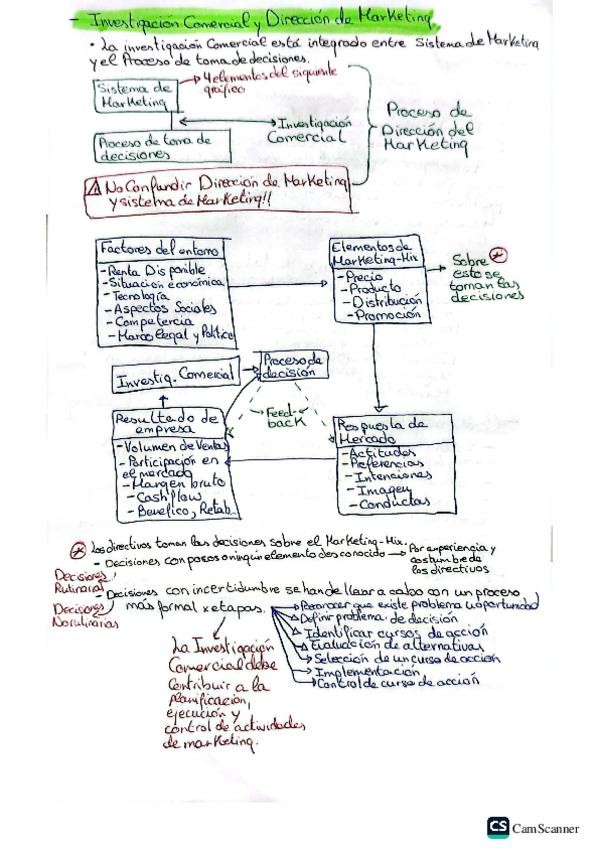 - Investigación Comercial y Dirección de Marketing.
• La investigación Comercial está integrado entre Sistema de Marketing
y el Proceso de toma de decisiones.
Sistema de
Marketing
4 elementos del siguiente
gráfico
Investigación
Comercial
Proceso de toma de
decisiones
Proceso de
Dirección del
Marketing
No Confundir Dirección de Marketing
y sistema de Marketing!!
Factores del entorno
- Renta Disponible
- Situación económica
- Tecnología
- Aspectos Sociales
- Competencia
- Marco legal y Político
Elementos de
Marketing-Mix
- Precio
- Producto
- Distribución
- Promoción
Sobre
esto se
toman las
decisiones
Investig. Comercial
Proceso de
decisión
Feed-
back
Resultado de
empresa
- Volumen de Ventas
- Participación en
el mercado
- Margen bruto
- Cashflow
- Benefico, Retab.
Respuesta de
Mercado
- Actitudes
- Preferencias
- Intenciones
- Imagen
- Conductas
Los directivos toman las decisiones sobre el Marketing-Mix.
- Decisiones con pocos o ningún elemento desconocido → Por experiencia y
costumbe de
los directivos
Decisiones
Rutinarias
- Decisiones con incertidumbre se han de llevar a cabo con un proceso
más formal x etapas.
Decisiones
No rutinarias
Reconocer que existe problema u oportunidad
Definir problema de decisión
Identificar cursos de acción
Evaluación de alternativas
Selección de un curso de acción
Implementación
Control de curso de acción
La Investigación
Comercial debe
Contribuir a la
planificación,
ejecución y
control de actividades
de marketing.
CS CamScanner